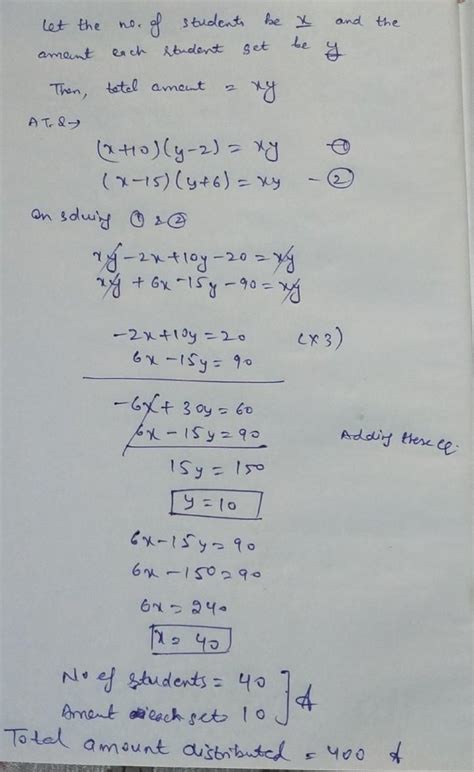 Let the no. of students be x and the
amount each student get be y
Then, total amount = xy
A T. Q →
(x+10)(y-2) = xy — ①
(x-15)(y+6) = xy — ②
On solving ① & ②
xy - 2x + 10y - 20 = xy
xy + 6x - 15y - 90 = xy
-2x + 10y = 20 (x3)
6x - 15y = 90
-6x + 30y = 60
6x - 15y = 90 Adding these eq.
15y = 150
y = 10
6x - 15y = 90
6x - 150 = 90
6x = 240
x = 40
No of students = 40
Amount each get = 10
Total amount distributed = 400